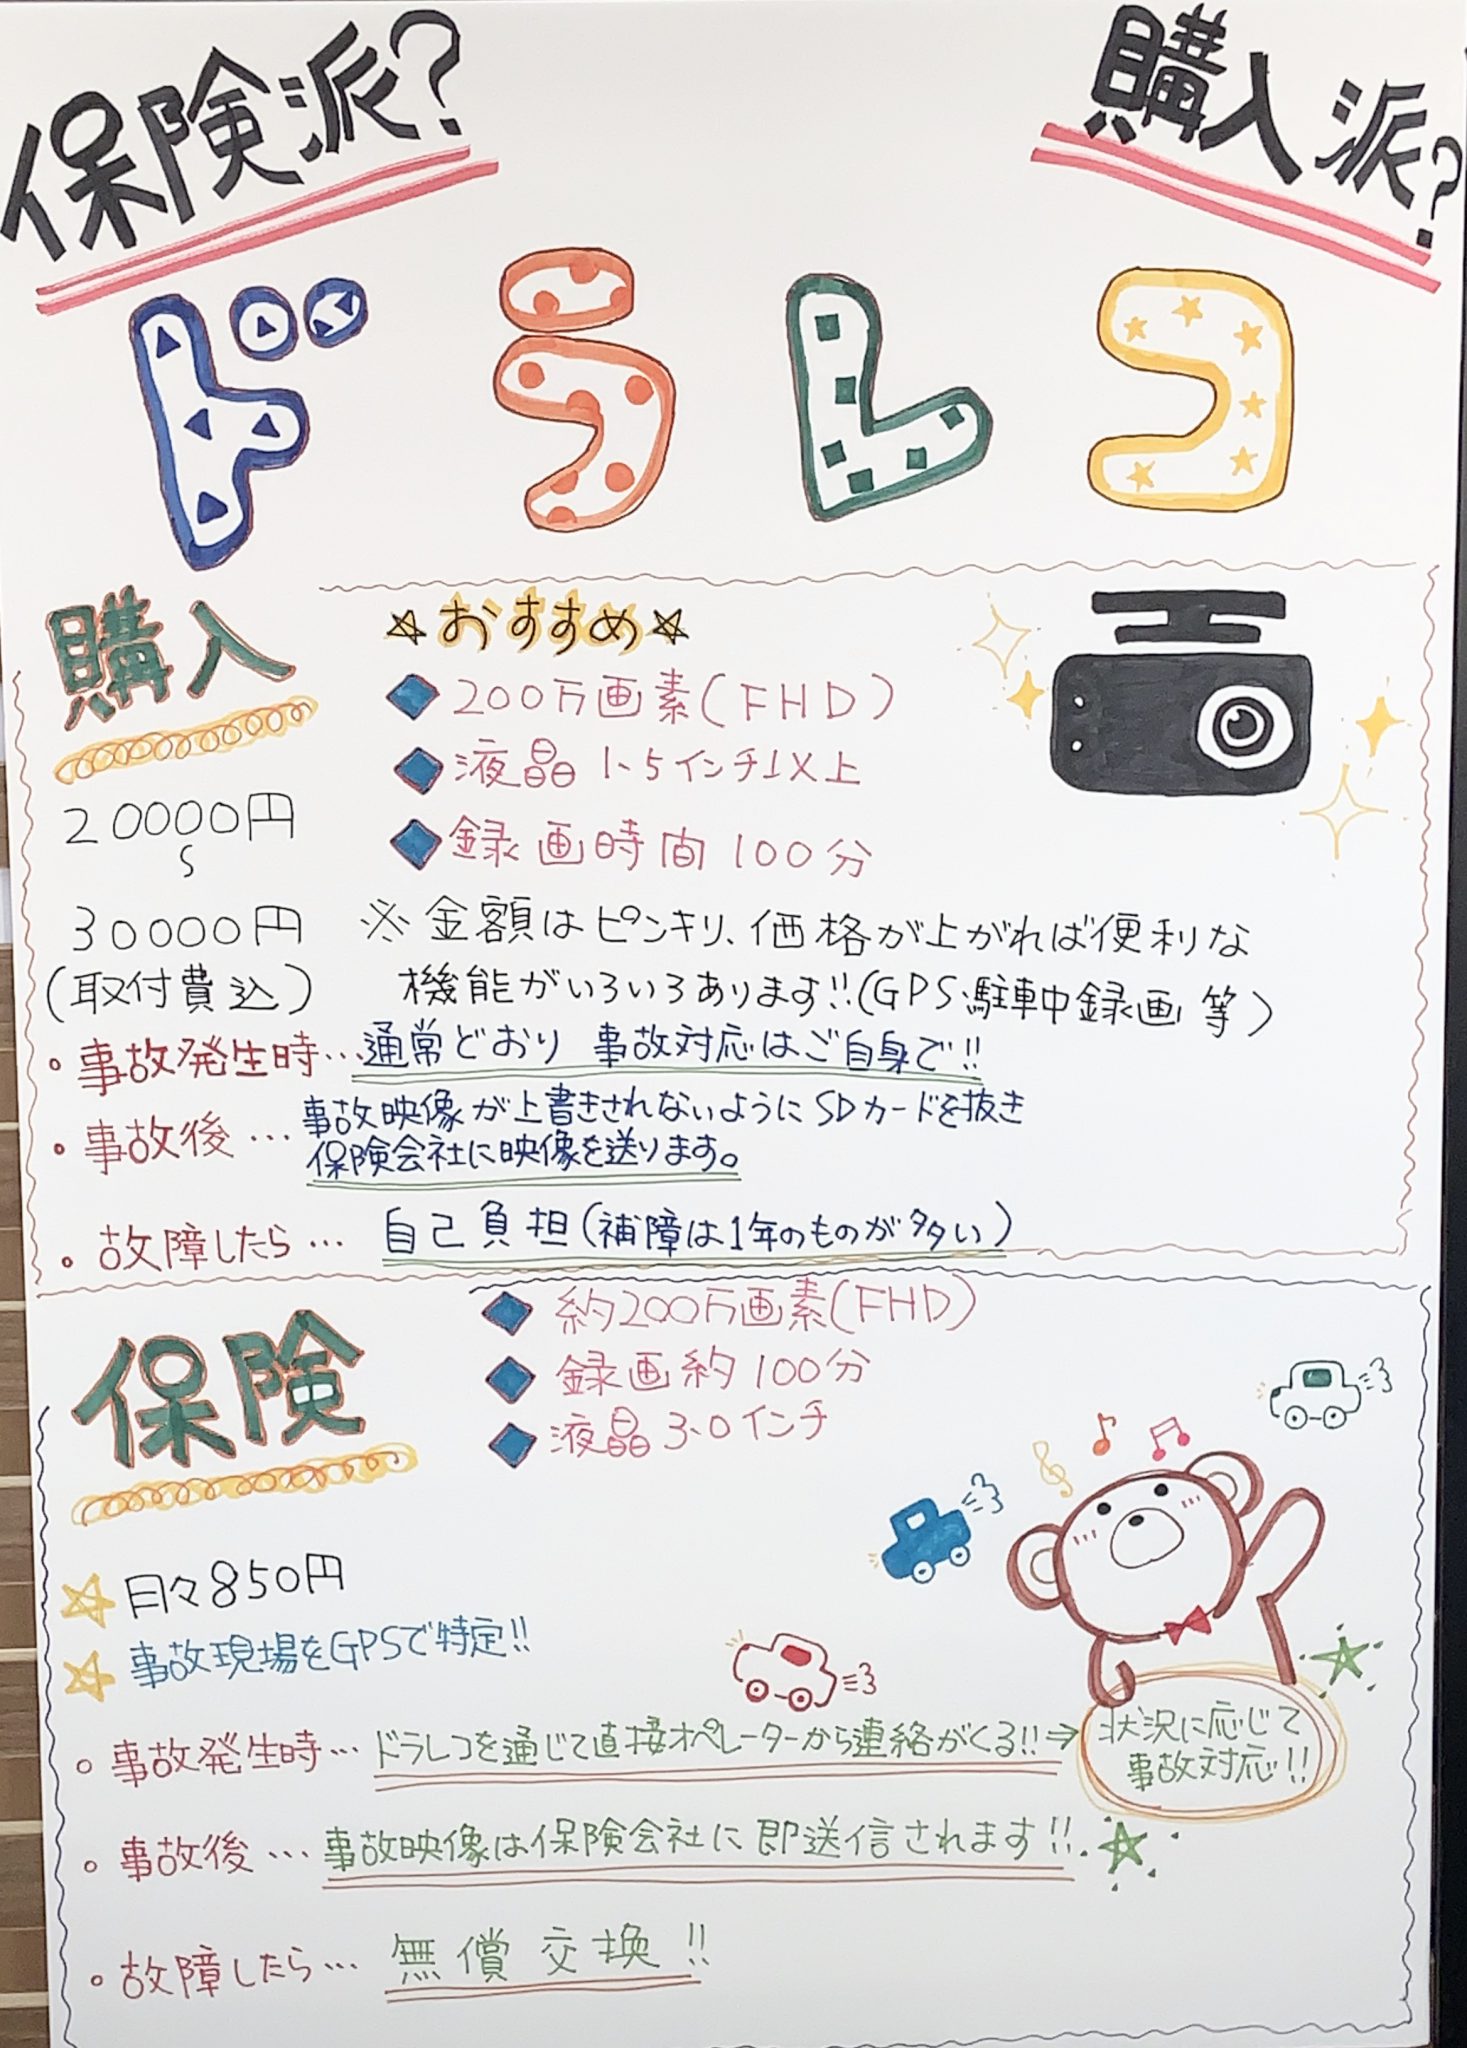 保険派?
購入派?
ドラレコ
購入
☆おすすめ☆
◆200万画素(FHD)
◆液晶1.5インチ以上
◆録画時間100分
20000円
〜
30000円
(取付費込)
※金額はピンキリ、価格が上がれば便利な
機能がいろいろあります!!(GPS・駐車中録画 等)
・事故発生時…通常どおり 事故対応はご自身で!!
・事故後…事故映像が上書きされないようにSDカードを抜き
保険会社に映像を送ります。
・故障したら…自己負担(補障は1年のものが多い)
保険
◆約200万画素(FHD)
◆録画約100分
◆液晶3.0インチ
☆月々850円
☆事故現場をGPSで特定!!
・事故発生時…ドラレコを通じて直接オペレーターから連絡がくる!!⇒
状況に応じて
事故対応!!
・事故後…事故映像は保険会社に即送信されます!!
・故障したら…無償交換!!